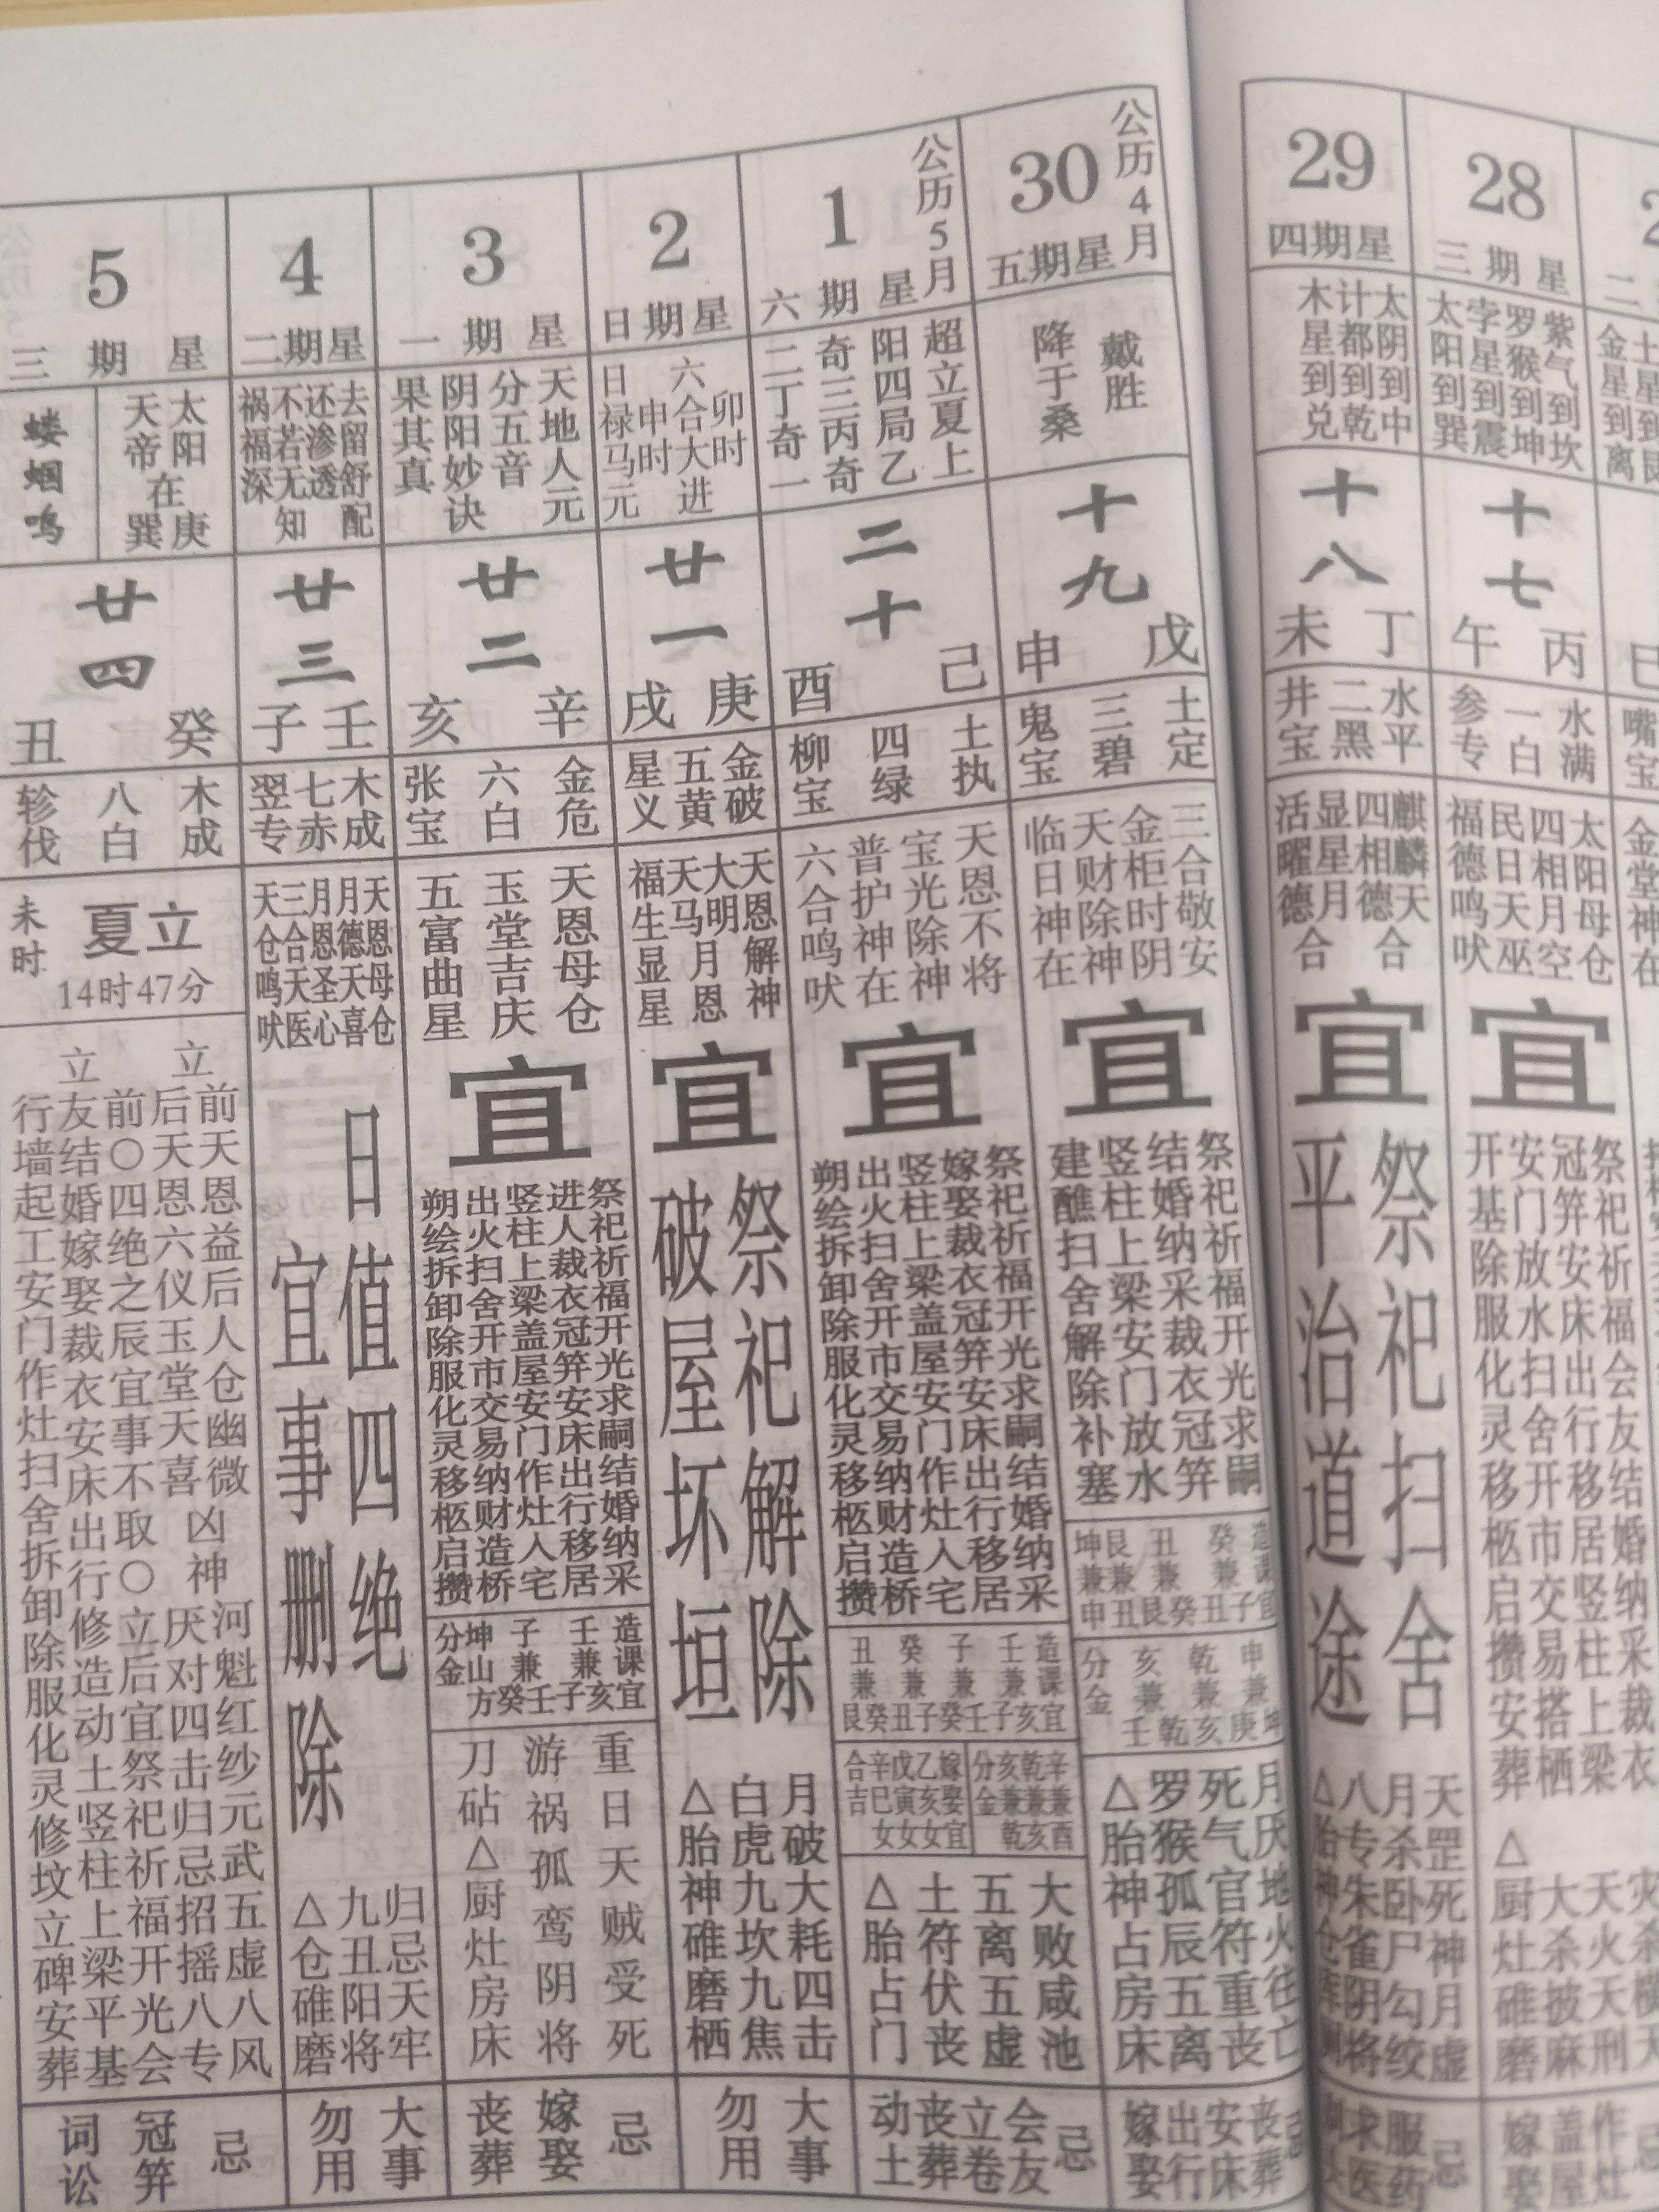 28
星期三
紫气到坎
罗猴到坤
孛星到震
太阳到巽
十七
丙午
水满
一白
参专
太阳母仓
四相月空
民日天巫
福德鸣吠
宜
祭祀祈福会友结婚纳采裁衣
冠笄安床出行移居竖柱上梁
安门放水扫舍开市交易搭栖
开基除服化灵移柩启攒安葬
天火天刑
大杀披麻
△厨灶碓磨
忌
作灶
盖屋
嫁娶
29
星期四
太阴到中
计都到乾
木星到兑
十八
丁未
水平
二黑
井宝
麒麟天
四相德合
显星月
活曜德合
宜
祭祀扫舍
平治道途
天罡死神月虚
月杀卧尸勾绞
八专朱雀阴将
忌
服药
求医
公历4月
30
星期五
戴胜
降于桑
十九
戊申
土定
三碧
鬼宝
三合敬安
金柜时阴
天财除神
临日神在
宜
祭祀祈福开光求嗣
结婚纳采裁衣冠笄
竖柱上梁安门放水
建醮扫舍解除补塞
造课宜
癸兼丑子
丑兼艮癸
艮兼丑
坤兼申
申兼庚坤
乾兼亥
亥兼壬乾
分金
月厌地火往亡
死气官符重丧
罗猴孤辰五离
△胎神占房床
忌
丧葬
安床
出行
嫁娶
公历5月
1
星期六
超立夏上
阳四局乙
奇三丙奇
二丁奇一
二十
己酉
土执
四绿
柳宝
天恩不将
宝光除神
普护神在
六合鸣吠
宜
祭祀祈福开光求嗣结婚纳采
嫁娶裁衣冠笄安床出行移居
竖柱上梁盖屋安门作灶入宅
出火扫舍开市交易纳财造桥
朔绘拆卸除服化灵移柩启攒
造课宜
壬兼子亥
子兼癸壬
癸兼丑子
丑兼艮癸
辛兼酉
乾兼亥
亥兼乾
分金
嫁娶宜
乙亥女
戊寅女
辛巳女
合吉
大败咸池
五离五虚
土符伏丧
△胎占门
忌
会友
立卷
丧葬
动土
2
星期日
卯时
六合大进
申时
日禄马元
廿一
庚戌
金破
五黄
星义
天恩解神
大明月恩
天马
福生显星
宜
祭祀解除
破屋坏垣
月破大耗四击
白虎九坎九焦
△胎神碓磨栖
大事
勿用
3
星期一
天地人元
分五音
阴阳妙诀
果其真
廿二
辛亥
金危
六白
张宝
天恩母仓
玉堂吉庆
五富曲星
宜
祭祀祈福开光求嗣结婚纳采
进人裁衣冠笄安床出行移居
竖柱上梁盖屋安门作灶入宅
出火扫舍开市交易纳财造桥
朔绘拆卸除服化灵移柩启攒
造课宜
壬兼子亥
子兼癸壬
坤山方
分金
重日天贼受死
游祸孤鸾阴将
刀砧△厨灶房床
忌
嫁娶
丧葬
4
星期二
去留舒配
还渗透
不若无知
祸福深
廿三
壬子
木成
七赤
翌专
天恩母仓
月德天喜
月恩圣心
三合天医
天仓鸣吠
日值四绝
宜事删除
归忌天牢
九丑阳将
△仓碓磨
大事
勿用
5
星期三
太阳
天帝
在
庚巽
蝼蝈鸣
廿四
癸丑
木成
八白
轸伐
立夏
未时
14时47分
立前天恩益后人仓幽微
立后天恩六仪玉堂天喜
凶神
河魁红纱元武五虚八风
厌对四击归忌招摇八专
立前○四绝之辰宜事不取○立后宜祭祀祈福开光会
友结婚嫁娶裁衣安床出行修造动土竖柱上梁平基
行墙起工安门作灶扫舍拆卸除服化灵修坟立碑安葬
忌
冠笄
词讼